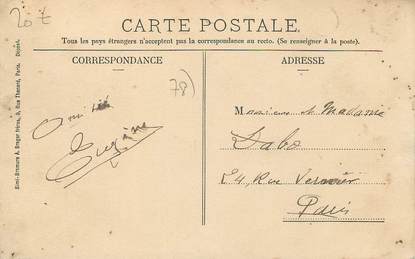 20 E
CARTE POSTALE.
Tous les pays étrangers n'acceptent pas la correspondance au recto. (Se renseigner à la poste).
CORRESPONDANCE
ADRESSE
78)
Amitiés
Eugène
Monsieur et Madame
Dabo
24, Rue Vernier
Paris
Simi-Bromure A. Breger frères, 9, Rue Thénard, Paris. Déposé.